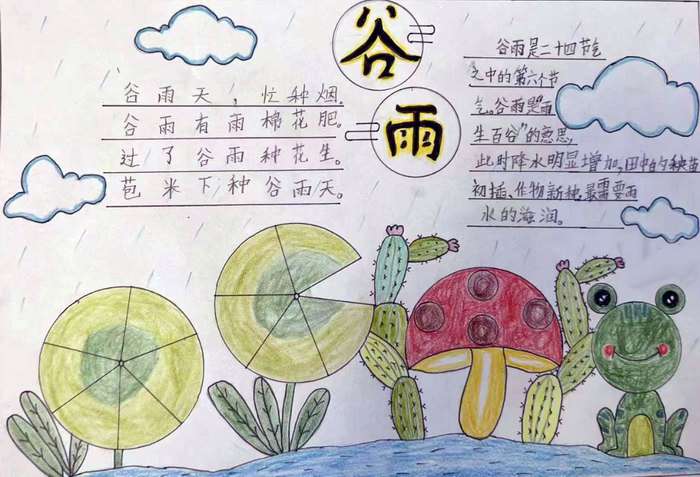 谷雨
谷雨天，忙种烟。
谷雨有雨棉花肥。
过了谷雨种花生。
苞米下种谷雨天。
谷雨是二十四节气
之中的第六个节
气。谷雨是"雨
生百谷"的意思,
此时降水明显增加,田中的秧苗
初插、作物新种,最需要雨
水的海润。